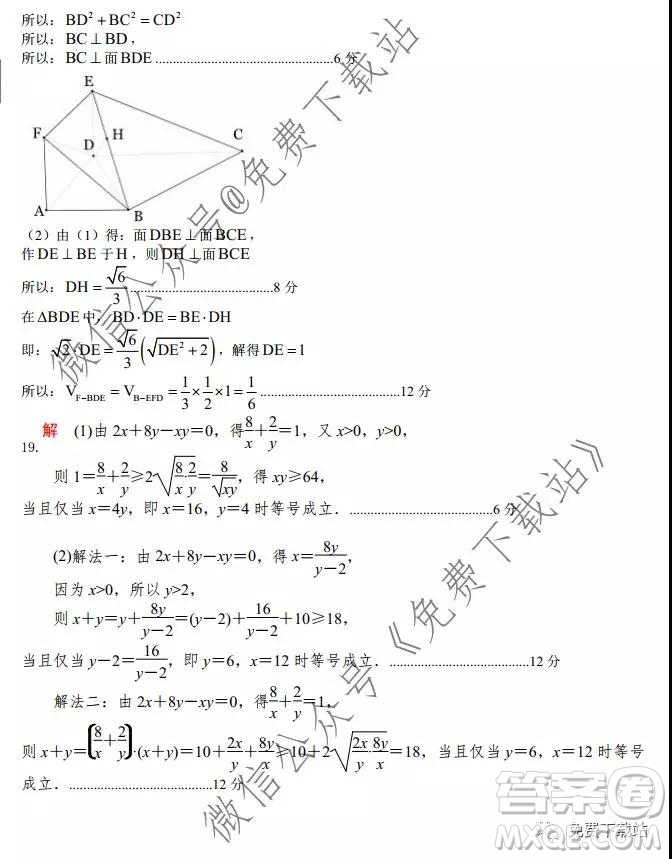 所以：BD²+BC²=CD²
所以：BC⊥BD，
所以：BC⊥面BDE……………………………………6分
E
F
D
H
C
A
B
（2）由（1）得：面DBE⊥面BCE，
作DE⊥BE于H，则DH⊥面BCE
所以：DH=√6/3……………………………8分
在ΔBDE中，BD·DE=BE·DH
即：√2·DE=√6/3(√(DE²+2))，解得DE=1
所以：V_{F-BDE}=V_{B-EFD}=1/3×1/2×1=1/6……………………………12分
19. 解 (1)由2x+8y-xy=0，得8/x+2/y=1，又x>0，y>0，
则1=8/x+2/y≥2√(8/x·2/y)=8/√(xy)，得xy≥64，
当且仅当x=4y，即x=16，y=4时等号成立．……………………………6分
(2)解法一：由2x+8y-xy=0，得x=8y/(y-2)，
因为x>0，所以y>2，
则x+y=y+8y/(y-2)=(y-2)+16/(y-2)+10≥18，
当且仅当y-2=16/(y-2)，即y=6，x=12时等号成立．……………………………12分
解法二：由2x+8y-xy=0，得8/x+2/y=1，
则x+y=(8/x+2/y)·(x+y)=10+2x/y+8y/x≥10+2√(2x/y·8y/x)=18，当且仅当y=6，x=12时等号
成立．……………………………12分
微信公众号@免费下载站
微信公众号《免费下载站》
答案圈
免费下载站
MXQE.COM